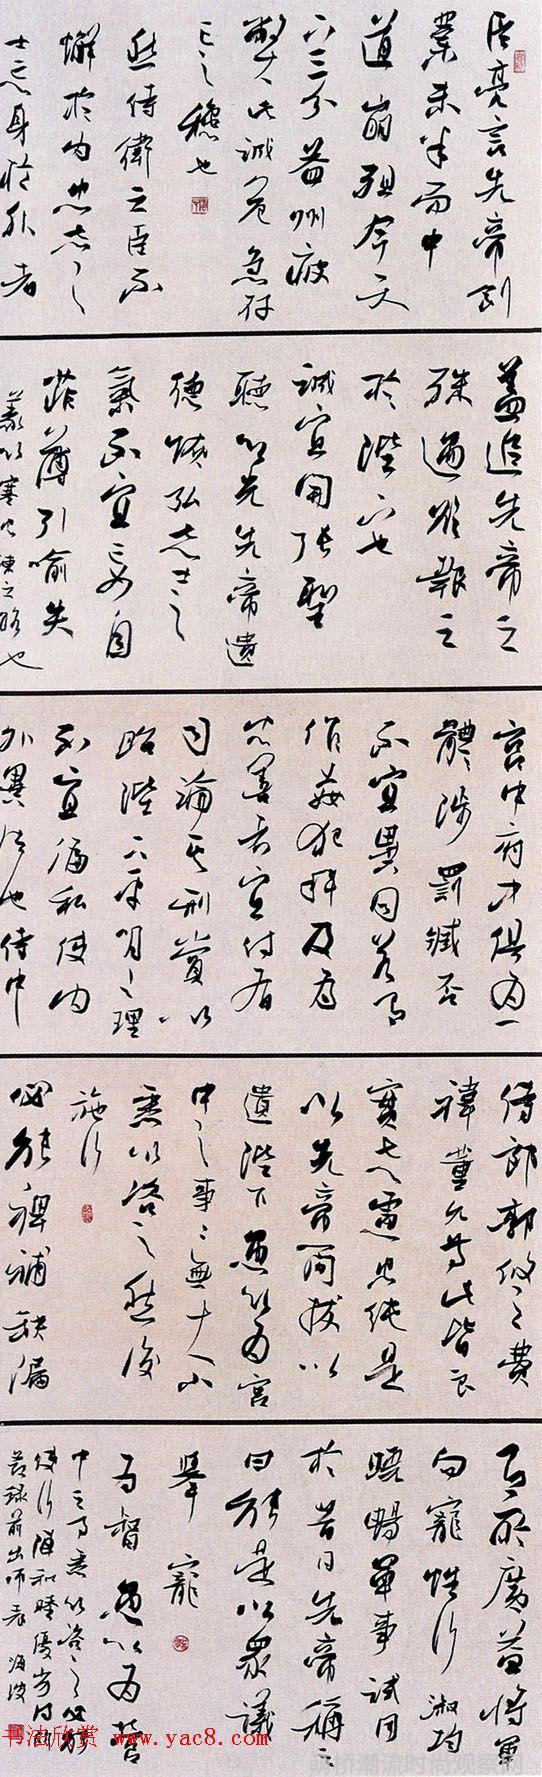 臣亮言先帝創
業未半而中
道崩殂今天
下三分益州疲
弊此誠危急存
亡之秋也
然侍衛之臣不
懈於內忠志之
士忘身於外者
蓋追先帝之
殊遇欲報之
於陛下也
誠宜開張聖
聽以光先帝遺
德恢弘志士之
氣不宜妄自
菲薄引喻失
義以塞忠諫之路也
宮中府中俱為一
體陟罰臧否
不宜異同若有
作姦犯科及為
忠善者宜付有
司論其刑賞以
昭陛下平明之理
不宜偏私使內
外異法也侍中
侍郎郭攸之費
禕董允等此皆良
實志慮忠純是
以先帝簡拔以
遺陛下愚以為宮
中之事事無大小
悉以咨之然後
施行
必能裨補缺漏
有所廣益將軍
向寵性行淑均
曉暢軍事試用
於昔日先帝稱之
曰能是以眾議
舉寵
為督愚以為營
中之事悉以咨之必能
使行陣和睦優劣得所
節錄前出師表
书法欣赏 www.yac8.com